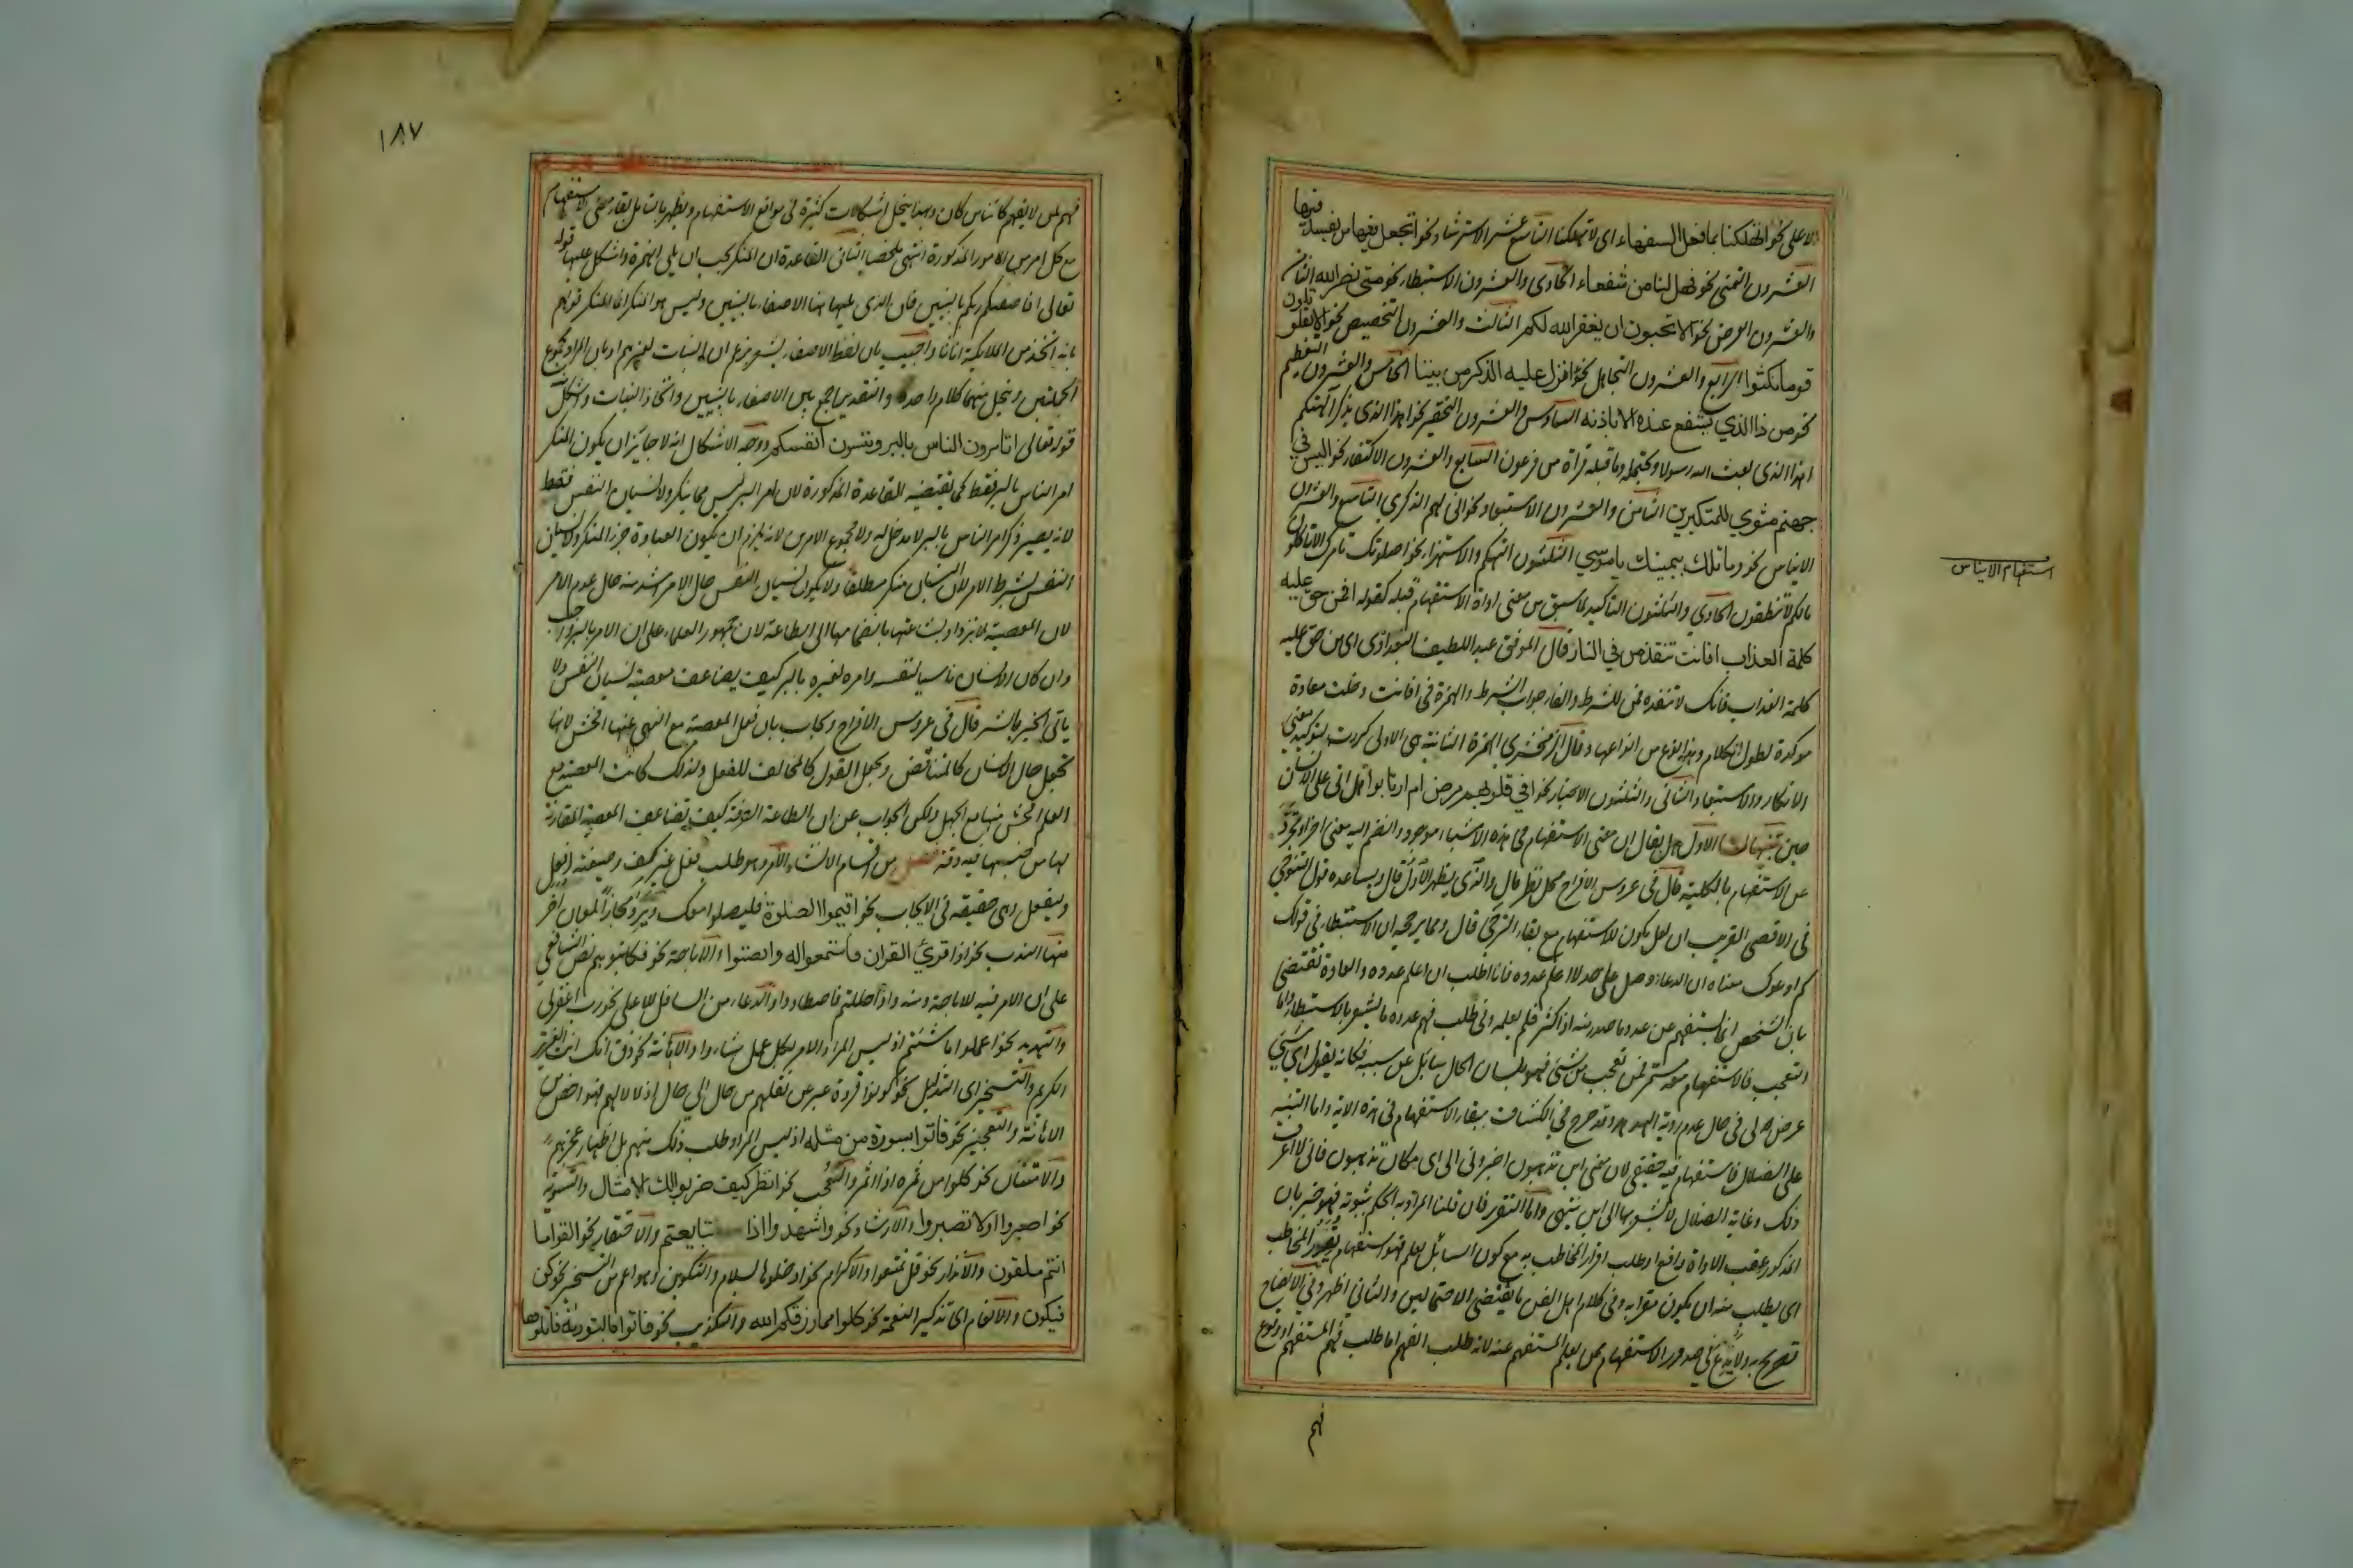 الاعلى نحو اتهلكنا بما فعل السفهاء اى لا تهلكنا التاسع عشر الاسترشاد نحو اتجعل فيها من يفسد فيها
العشرون التمنى نحو فهل لنا من شفعاء الحادى والعشرون الاستبطاء نحو متى نصر الله الثانى
والعشرون العرض نحو الا تحبون ان يغفر الله لكم الثالث والعشرون التحضيض نحو الا تقاتلون
قوما نكثوا الرابع والعشرون التجاهل نحو اانزل عليه الذكر من بيننا الخامس والعشرون التعظيم
نحو من ذا الذي يشفع عنده الا باذنه السادس والعشرون التحقير نحو اهذا الذى يذكر الهتكم
اهذا الذى بعث الله رسولا ويحتمله وما قبله قراة من فرعون السابع والعشرون الاكتفاء نحو اليس في
جهنم مثوي للمتكبرين الثامن والعشرون الاستبعاد نحو انى لهم الذكري التاسع والعشرون
الايناس نحو وما تلك بيمينك يا موسي الثلثون التهكم والاستهزاء نحو اصلوتك تامرك الا تاكلون
مالكم لا تنطقون الحادي والثلثون التاكيد لما سبق من معنى اداة الاستفهام قبله كقوله افمن حق عليه
كلمة العذاب افانت تنقذ من في النار قال الموفق عبد اللطيف البغدادى اى من حق عليه
كلمة العذاب فانك لا تنقذه فمن للشرط والفاء جواب الشرط والهمزة فى افانت دخلت معادة
موكدة لطول الكلام وهذا نوع من انواعها وقال الزمخشرى الهمزة الثانية هى الاولى كررت لتوكيد معنى
الانكار والاستبعاد الثانى والثلثون الاخبار نحو افي قلوبهم مرض ام ارتابوا هل اتى على الانسان
حين تنبيهات الاول هل يقال ان معنى الاستفهام فى هذه الاشياء موجود وانضم اليه معنى اخر او تجرد
عن الاستفهام بالكلية قال فى عروس الافراح محل نظر قال والذى يظهر الاول قال ويساعده قول التنوخي
فى الاقصى القريب ان لعل يكون للاستفهام مع بقاء الترجى قال ومما يرجحه ان الاستبطاء فى قولك
كم ادعوك معناه ان الدعاء وصل على حد لا اعلم عدده فانا اطلب ان اعلم عدده والعادة تقتضى
بان الشخص انما يستفهم عن عدد ما صدر منه اذا كثر فلم يعلمه وفى طلب فهم عدده ما يشعر بالاستبطاء واما
التعجب فالاستفهام معه مستمر فمن تعجب من شئ فهو بلسان الحال سائل عن سببه فكانه يقول اى شئ
عرض لى فى حال عدم روية الهدهد وقد صرح في الكشاف ببقاء الاستفهام فى هذه الاية واما التنبيه
على الضلال فاستفهام فيه حقيقى لان معنى اين تذهبون اخبرونى الى اى مكان تذهبون فانى لا اعرف
ذلك وغاية الضلال لا يشعر بها الى اين تنتهى واما التقرير فان قلنا المراد به الحكم بثبوته فهو خبر بان
المذكور عقيب الاداة واقع او طلب اقرار المخاطب به مع كون السائل يعلم فهو استفهام يقرر المخاطب
اى يطلب منه ان يكون مقرا به وفى كلام اهل الفن ما يقتضى الاحتمالين والثانى اظهر وفي الايضاح
تصريح به ولا بدع فى صدور الاستفهام ممن يعلم المستفهم عنه لانه طلب الفهم اما طلب فهم المستفهم او وقوع
فهم
استفهام الايناس
١٨٧
فهم لمن لا يفهم كائنا من كان وبهذا ينحل اشكالات كثيرة فى مواقع الاستفهام ويظهر بالتامل بقاء معنى الاستفهام
مع كل امر من الامور المذكورة انتهى ملخصا الثانى القاعدة ان المنكر يجب ان يلى الهمزة واشكل عليها قوله
تعالى افاصفيكم ربكم بالبنين فان الذى يليها هنا الاصفاء بالبنين وليس هو المنكر انما المنكر قولهم
بانه اتخذ من الملايكة اناثا واجيب بان لفظ الاصفاء يشعر بزعم ان البنات لغيرهم او بان المراد مجموع
الجملتين وينحل منهما كلام واحد والتقدير اجمع بين الاصفاء بالبنين واتخاذ البنات واشكل
قوله تعالى اتامرون الناس بالبر وتنسون انفسكم ووجه الاشكال انه لا جائز ان يكون المنكر
امر الناس بالبر فقط كما يقتضيه القاعدة المذكورة لان امر البر ليس مما ينكر ولا نسيان النفس فقط
لانه يصير ذكر امر الناس بالبر لا مدخل له ولا مجموع الامرين لانه يلزم ان يكون العبادة جزء المنكر ولا نسيان
النفس بشرط الامر لان النسيان منكر مطلقا ولا يكون نسيان النفس حال الامر اشد منه حال عدم الامر
لان المعصية لا تزداد بشاعتها بانضمامها الى الطاعة لان جمهور العلماء على ان الامر بالبر واجب
وان كان الانسان ناسيا لنفسه وامره لغيره بالبر كيف يضاعف معصية نسيان النفس ولا
ياتى الخير بالشر قال فى عروس الافراح ويجاب بان فعل المعصية مع النهى عنها افحش لانها
تجعل حال الانسان كالمتناقض وتجعل القول كالمخالف للفعل ولذلك كانت المعصية مع
العلم افحش منها مع الجهل ولكن الجواب عن ان الطاعة الصرفة كيف تضاعف المعصية المقارنة
لها من جنسها فيه دقة فصل من اقسام الانشاء الامر وهو طلب فعل غير كف وصيغته افعل
وليفعل وهى حقيقة فى الايجاب نحو اقيموا الصلوة فليصلوا معك ويرد مجازا لمعان اخر
منها الندب نحو اذا قرئ القران فاستمعوا له وانصتوا والاباحة نحو فكاتبوهم نص الشافعى
على ان الامر فيه للاباحة ومنه واذا حللتم فاصطادوا والدعاء من السافل للاعلى نحو رب اغفر لى
والتهديد نحو اعملوا ما شئتم اذ ليس المراد الامر بكل عمل شاءوا والاهانة نحو ذق انك انت العزيز
الكريم والتسخير اى التذليل نحو كونوا قردة عبر عن نقلهم من حال الى حال اذلالا لهم فهو اخص من
الاهانة والتعجيز نحو فاتوا بسورة من مثله اذ ليس المراد طلب ذلك منهم بل اظهار عجزهم
والامتنان نحو كلوا من ثمره اذا اثمر والتعجب نحو انظر كيف ضربوا لك الامثال والتسوية
نحو اصبروا او لا تصبروا والارشاد نحو واشهدوا اذا تبايعتم والاحتقار نحو القوا ما
انتم ملقون والانذار نحو قل تمتعوا والاكرام نحو ادخلوها بسلام والتكوين وهو اعم من التسخير نحو كن
فيكون والانعام اى تذكير النعمة نحو كلوا مما رزقكم الله والتكذيب نحو فاتوا بالتورية فاتلوها